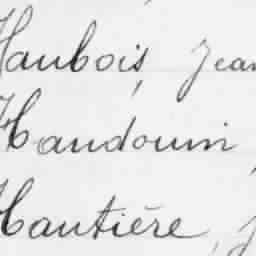 Haubois, Jean
Haudouin
Hautière, J